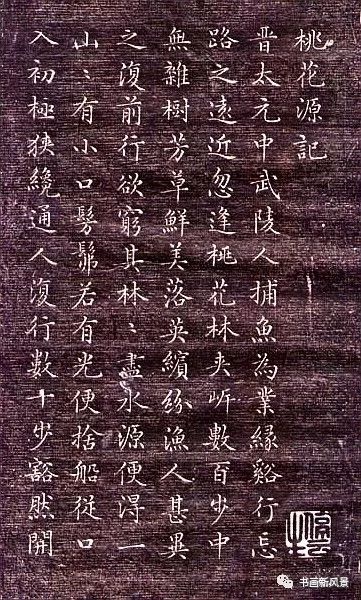 桃花源記
晉太元中武陵人捕魚為業緣谿行忘
路之遠近忽逢桃花林夾岸數百步中
無雜樹芳草鮮美落英繽紛漁人甚異
之復前行欲窮其林〻盡水源便得一
山〻有小口髣髴若有光便捨船從口
入初極狹纔通人復行數十步豁然開
书画新风景